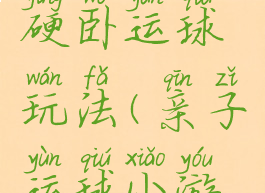 硬卧运球
wán fǎ qīn zǐ
玩法(亲子
yùn qiú xiǎo yóu
运球小游